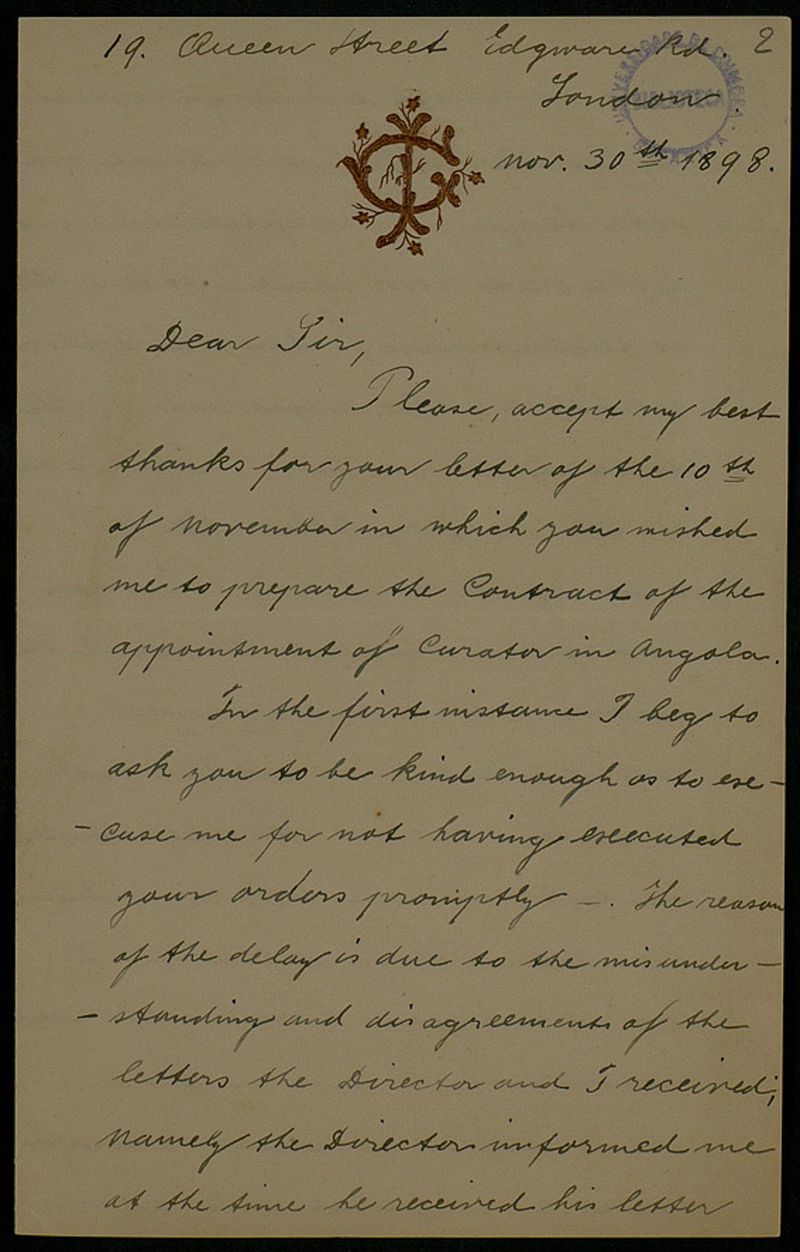 19. Queen Street Edgware Rd. 2
London.
Nov. 30th 1898.
Dear Sir,
Please, accept my best
thanks for your letter of the 10th
of November in which you wished
me to prepare the Contract of the
appointment of Curator in Angola.
In the first instance I beg to
ask you to be kind enough as to exc-
-cuse me for not having executed
your orders promptly —. The reason
of the delay is due to the misunder-
-standing and disagreements of the
letters the Director and I received;
namely the Director informed me
at the time he received his letter